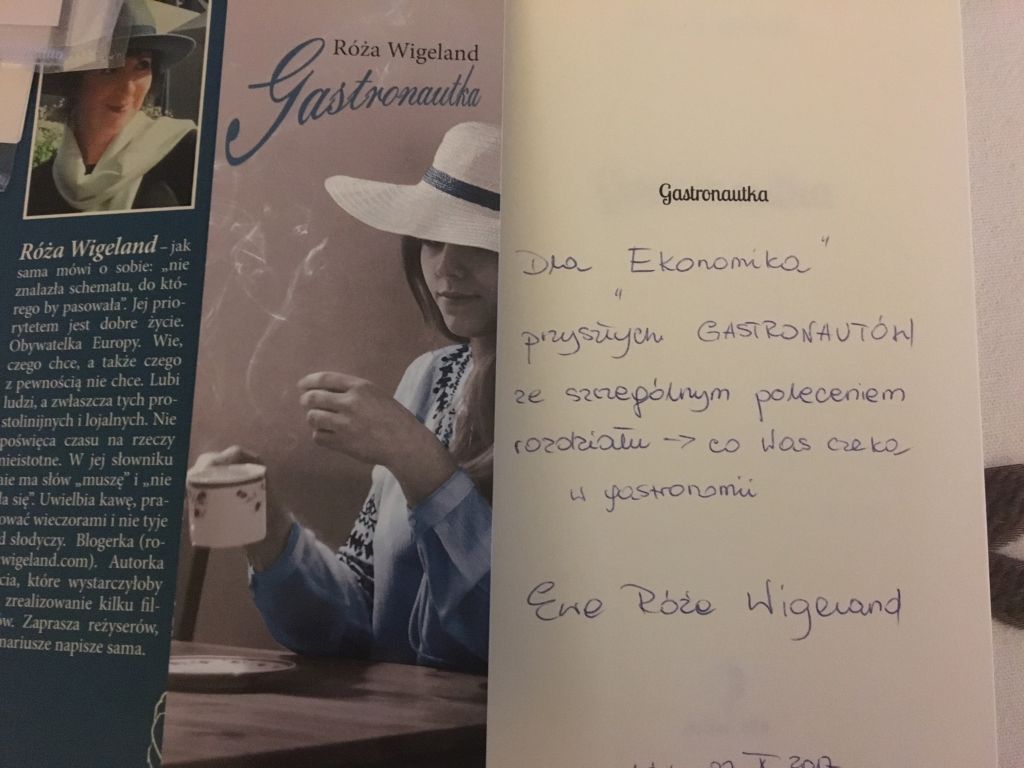 Róża Wigeland – jak
sama mówi o sobie: „nie
znalazła schematu, do któ-
rego by pasowała”. Jej prio-
rytetem jest dobre życie.
Obywatelka Europy. Wie,
czego chce, a także czego
z pewnością nie chce. Lubi
ludzi, a zwłaszcza tych pro-
stolinijnych i lojalnych. Nie
poświęca czasu na rzeczy
nieistotne. W jej słowniku
nie ma słów „muszę” i „nie
da się”. Uwielbia kawę, pra-
ować wieczorami i nie tyje
d słodyczy. Blogerka (ro-
wigeland.com). Autorka
cia, które wystarczyłoby
zrealizowanie kilku fil-
ów. Zaprasza reżyserów,
nariusze napisze sama.
Róża Wigeland
Gastronautka
Gastronautka
Dla "Ekonomika"
przyszłych GASTRONAUTÓW
ze szczególnym poleceniem
rozdziału -> co Was czeka
w gastronomii
Ewa Róża Wigeland
X 2017